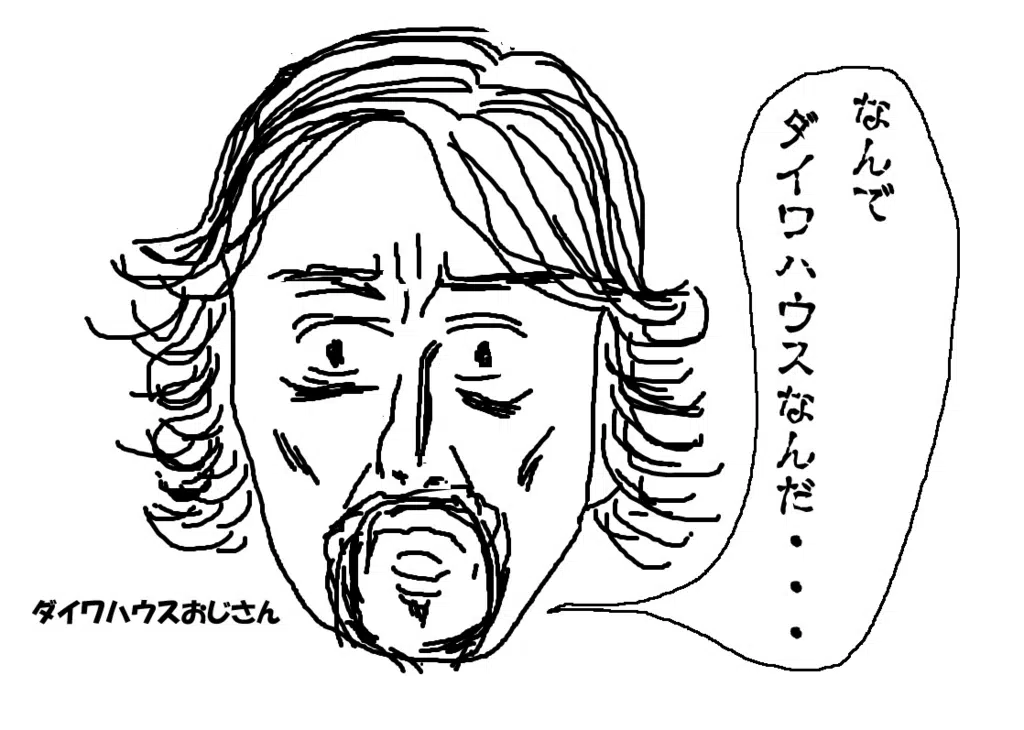 なんで
ダイワハウスなんだ・・・
ダイワハウスおじさん